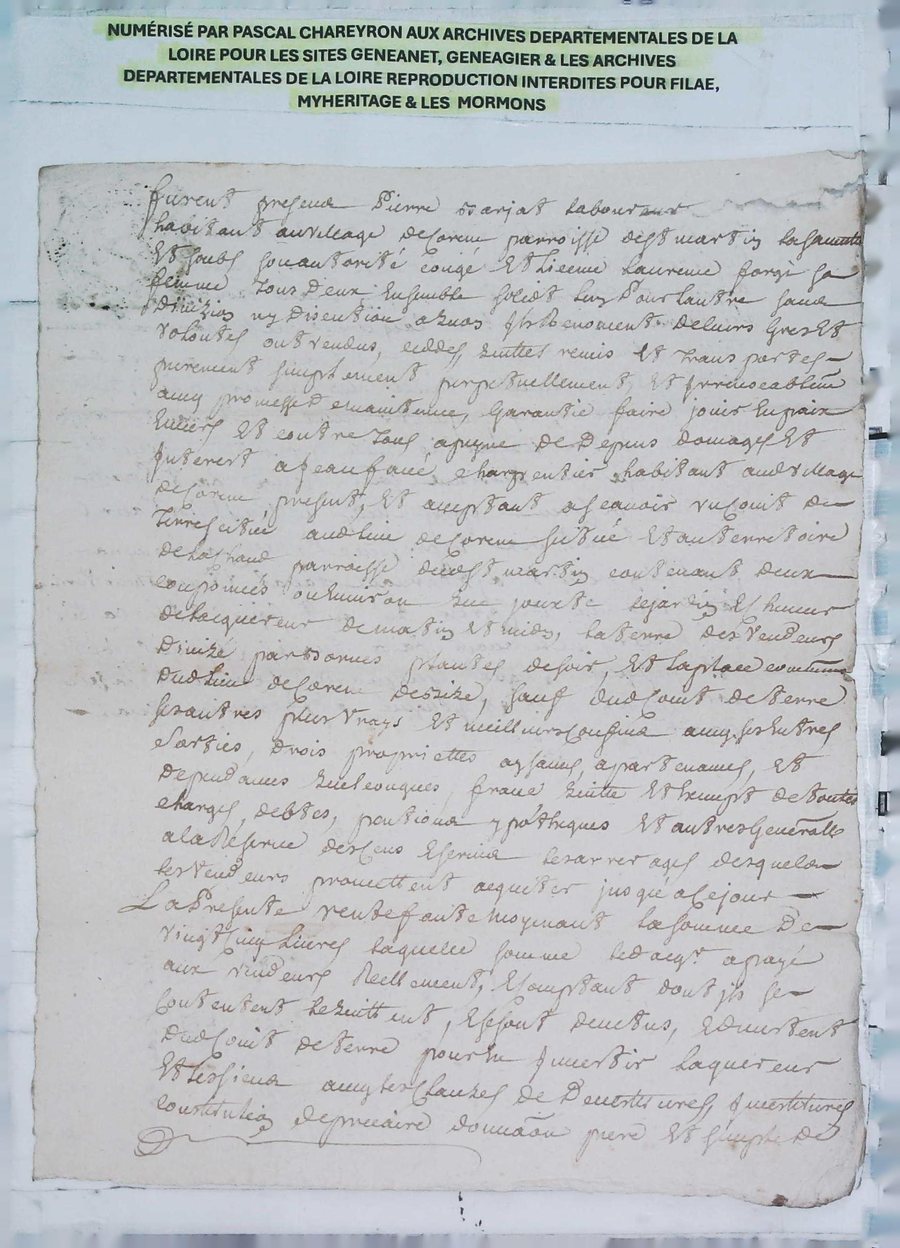 NUMÉRISÉ PAR PASCAL CHAREYRON AUX ARCHIVES DEPARTEMENTALES DE LA
LOIRE POUR LES SITES GENEANET, GENEAGIER & LES ARCHIVES
DEPARTEMENTALES DE LA LOIRE REPRODUCTION INTERDITES POUR FILAE,
MYHERITAGE & LES MORMONS
furent presens Pierre laboureur
habitant au village de parroisse de st martin
Et soubs son autorité congé Et licence Laurence forge sa
femme tous deux Ensemble solid Lung Pour lautre sans
Division ny discution leurs gres Et
volontes ont vendus, ceddes, quittes remis Et transportes
purement simplement perpetuellement, Et Irrevocablem
avec promesse de maintenue, garantie faire jouir En paix
Envers Et contre tous, a peyne de Depens domages Et
Interest a Jean faure charpentier habitant aud village
de present, Et aceptant a scavoir un coint de
terre scitué aud lieu de scitué Et au territoire
de parroisse dud st martin contenant deux
couponnées ou Environ que jouxte le jardin Et
de lacquereur de matin Et midy, la terre des vendeurs
Divize par bornes plantes de soir, Et la place commune
dud lieu de de bize, sauf dud coint de terre
ses autres plus vrays Et meilleurs confins avec ses Entres
sorties, drois proprietes aysances, apartenances, Et
dependances quelconques, franc quitte Et Exempt de toutes
charges, debtes, pentions ypotheques Et autres Generalles
a la Reserve des cens Et servis les arrerages desquels
les vendeurs promettent acquiter jusque a ce jour
La Presente vente faitte moyenant la somme De
vingt cinq livres laquelle somme led acqr a payé
aux vendeurs Reellement, Et comptant dont ils se
contentent le quittent, Et se sont devetus, Et devettent
dud coint de terre pour En Investir laquereur
Et les siens avec les clauses de Devestitures, Investitures
constitution de precaire donnaon pure Et simple de